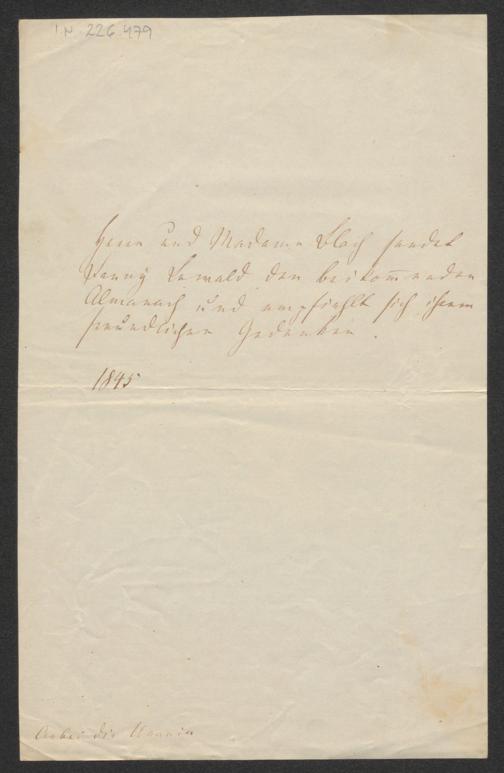 IN 226 479
Herrn und Madame Bloch sendet
Fanny Lewald den beikom̅enden
Almanach und empfiehlt sich ihrem
freundlichen Gedenken.
1845
die